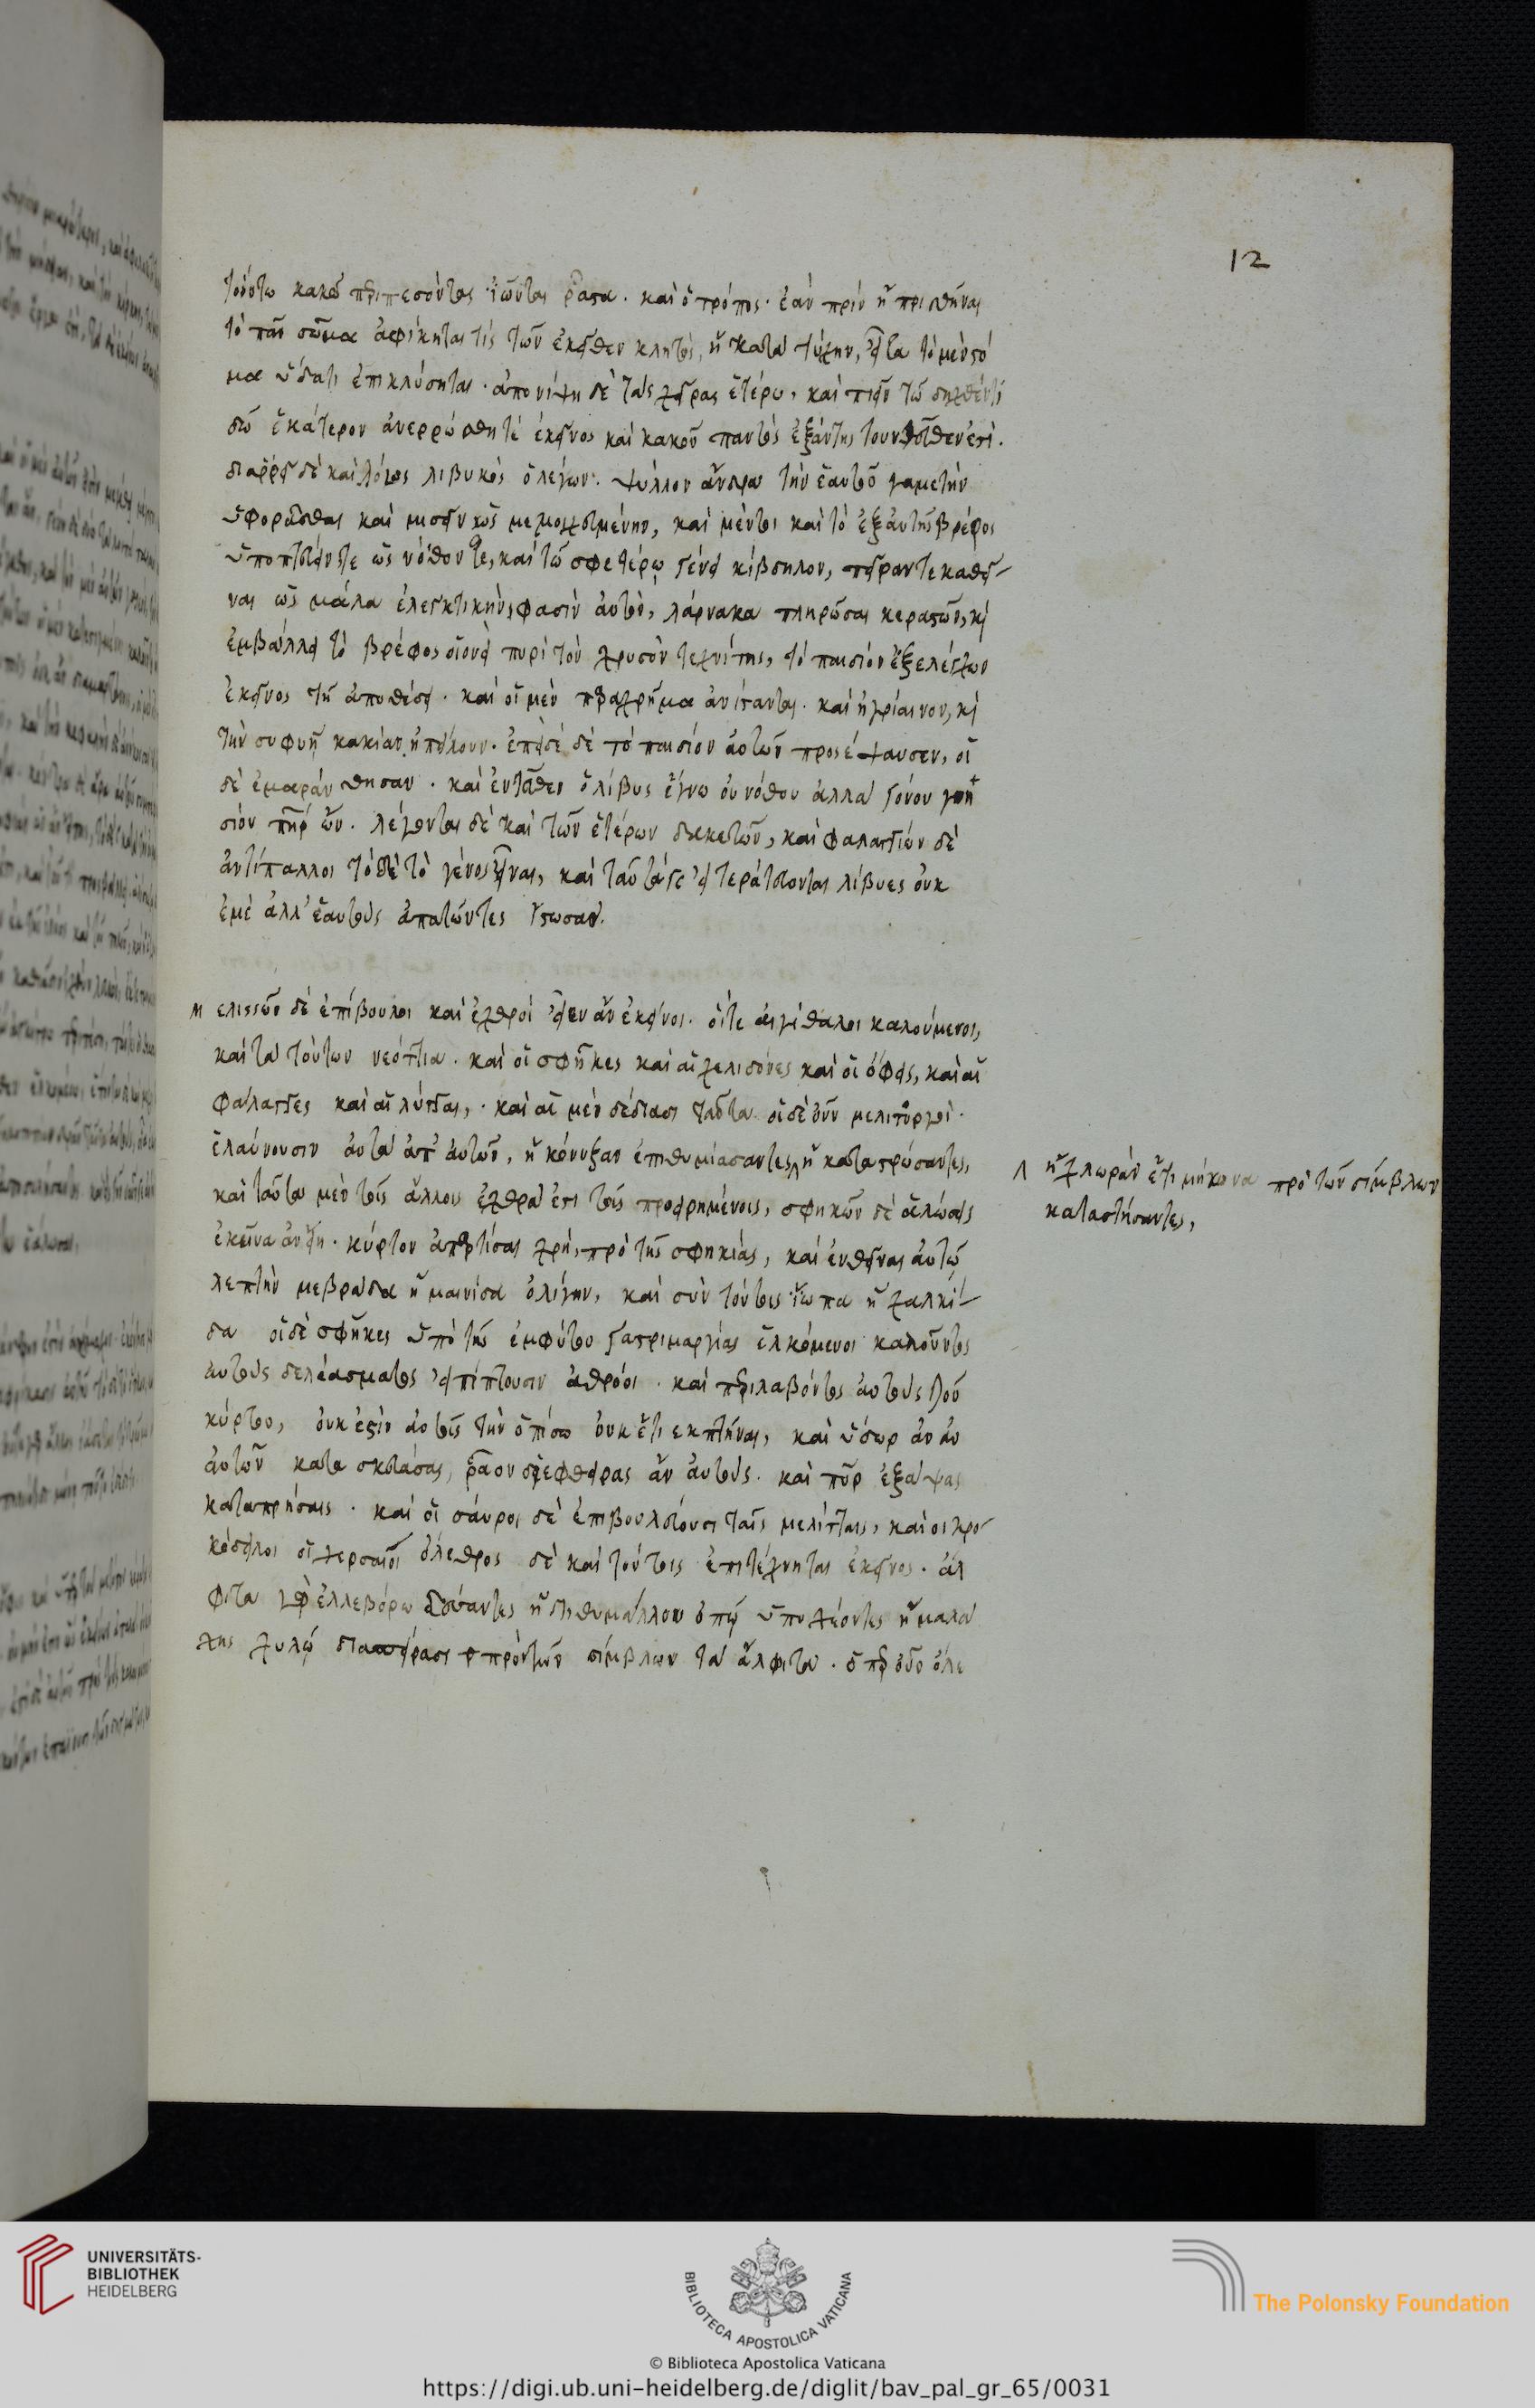 12
τούτω κακῶ περιπεσόντας ἰῶνται ῥᾶστα. καὶ ὁ τρόπος. ἐὰν πρὶν ἢ πρισθῆναι
τὸ πᾶν σῶμα ἀφίκηταί τις τῶν ἐκεῖθεν κλητὸς, ἢ κατὰ τύχην, εἶτα τὸ μὲν στό
μα ὕδατι ἐπικλύσηται. ἀπονίψη δὲ τὰς χεῖρας ἑτέρω, καὶ πιεῖν τῶ δηχθέντι
δῶ ἑκάτερον ἀνερρώσθη τὲ ἐκεῖνος καὶ κακοῦ παντὸς ἐξάντης τουντεῦθεν ἐστί.
διαρρεῖ δὲ καὶ λόγος λιβυκὸς ὁ λέγων. ψύλλον ἄνδρα τὴν ἑαυτοῦ γαμετὴν
ὑφορᾶσθαι καὶ μισεῖν ὡς μεμοιχευμένην, καὶ μέντοι καὶ τὸ ἐξ αὐτῆς βρέφος
ὑποπτεύειν τε ὡς νόθον τε, καὶ τῶ σφετέρω γένει κίβδηλον, πεῖραν τε καθεῖ
ναι ὡς μάλα ἐλεγκτικὴν φασὶν αὐτὸν, λάρνακα πληρῶσαι κεραστῶν, καὶ
ἐμβάλλει τὸ βρέφος οἱονεὶ πυρὶ τὸν χρυσὸν τεχνίτης, τὸ παιδίον ἐξελέγχων
ἐκεῖνος τῆ ἀποθέσει. καὶ οἱ μὲν παραχρῆμα ἀνίσταντο. καὶ ἠγρίαινον, καὶ
τὴν συμφυῆ κακίαν ἠπείλουν. ἐπεὶ δὲ τὸ παιδίον αὐτῶν προσέψαυσεν, οἱ
δὲ ἐμαράνθησαν. καὶ ἐντεῦθεν ὁ λίβυς ἔγνω οὐ νόθου ἀλλὰ γόνου γνη
σίου πατὴρ ὢν. λέγονται δὲ καὶ τῶν ἑτέρων δακετῶν, καὶ φαλαγγίων δὲ
ἀντίπαλοι τόδε τὸ γένος εἶναι, καὶ ταῦτά γε εἰ τερατεύονται λίβυες οὐκ
ἐμὲ ἀλλ' ἑαυτοὺς ἀπατῶντες ἴστωσαν.
μελισσῶν δὲ ἐπίβουλοι καὶ ἐχθροὶ εἶεν ἂν ἐκεῖνοι. οἵτε αἰγίθαλοι καλούμενοι,
καὶ τὰ τούτων νεόττια. καὶ οἱ σφῆκες καὶ αἱ χελιδόνες καὶ οἱ ὄφεις, καὶ αἱ
φάλαγγες καὶ αἱ λύτται,. καὶ αἱ μὲν δεδίασι ταῦτα. οἱ δὲ οὖν μελιτουργοὶ.
ἐλαύνουσιν αὐτὰ ἀπ' αὐτῶν, ἢ κόνυζαν ἐπιθυμιάσαντες, ἢ καταπρήσαντες,
Λ ἢ χλωρὰν ἔτι μήκωνα πρὸ τῶν σίμβλων
καταστήσαντες,
καὶ ταῦτα μὲν τοῖς ἄλλοις ἐχθρὰ ἐστι τοῖς προειρημένοις, σφηκῶν δὲ ἁλώσεις
ἐκεῖνα ἂν εἴη. κύρτον ἀπαρτῆσαι χρὴ, πρὸ τῆς σφηκιᾶς, καὶ ἐνθεῖναι αὐτῶ
λεπτὴν μεβράδα ἢ μαινίδα ὀλίγην, καὶ σὺν τούτοις ἴωπα ἢ χαλκί
δα οἱ δὲ σφῆκες ὑπὸ τῆς ἐμφύτου γαστριμαργίας ἑλκόμενοι καλοῦντος
αὐτοὺς δελεάσματος εἰσπίπτουσιν ἀθρόοι. καὶ περιλαβόντος αὐτοὺς τοῦ
κύρτου, οὐκ ἔστιν αὐτοῖς τὴν ὀπίσω οὐκέτι ἐκπτῆναι, καὶ ὕδωρ ἂν ἂν
αὐτῶν κατασκεδάσας, ῥᾶον διέφθειρας ἂν αὐτούς. καὶ πῦρ ἐξάψας
καταπρήσαις. καὶ οἱ σαῦροι δὲ ἐπιβουλεύουσι ταῖς μελίτταις, καὶ οἱ κρο
κόδειλοι οἱ χερσαῖοι ὄλεθρος δὲ καὶ τούτοις ἐπιτέχνηται ἐκεῖνος. ἄλ
φιτα ἐλλεβόρω δεύσαντες ἢ τιθυμάλλου ὀπῶ ὑποχέοντες ἢ μαλά
χης χυλῶ διασπείρασι πρὸ τῶν σίμβλων τὰ ἄλφιτα.
UNIVERSITÄTS-
BIBLIOTHEK
HEIDELBERG
BIBLIOTECA APOSTOLICA VATICANA
The Polonsky Foundation
© Biblioteca Apostolica Vaticana
https://digi.ub.uni-heidelberg.de/diglit/bav_pal_gr_65/0031